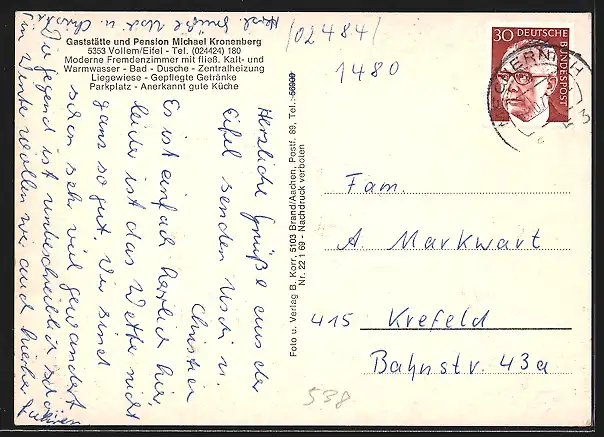 Gaststätte und Pension Michael Kronenberg
5353 Vollem/Eifel - Tel. (024424) 180
Moderne Fremdenzimmer mit fließ. Kalt- und
Warmwasser - Bad - Dusche - Zentralheizung
Liegewiese - Gepflegte Getränke
Parkplatz - Anerkannt gute Küche
(02484)
1480
Herzliche Grüße aus der
Eifel senden Uschi u.
Christian
Es ist einfach herrlich hier,
leider ist das Wetter nicht
ganz so gut. Wir sind
schon sehr viel gewandert
Die Gegend ist unbeschreiblich schön
im Winter wollen wir auch hierher fahren
Herzl. Grüße Uschi u. Christian
Foto u. Verlag B. Korr, 5103 Brand/Aachen, Postf. 89, Tel.:
Nr. 22 1 69 - Nachdruck verboten
30 DEUTSCHE
BUNDESPOST
MECHERNICH
53
Fam.
A Markwart
415 Krefeld
Bahnstr. 43a
538